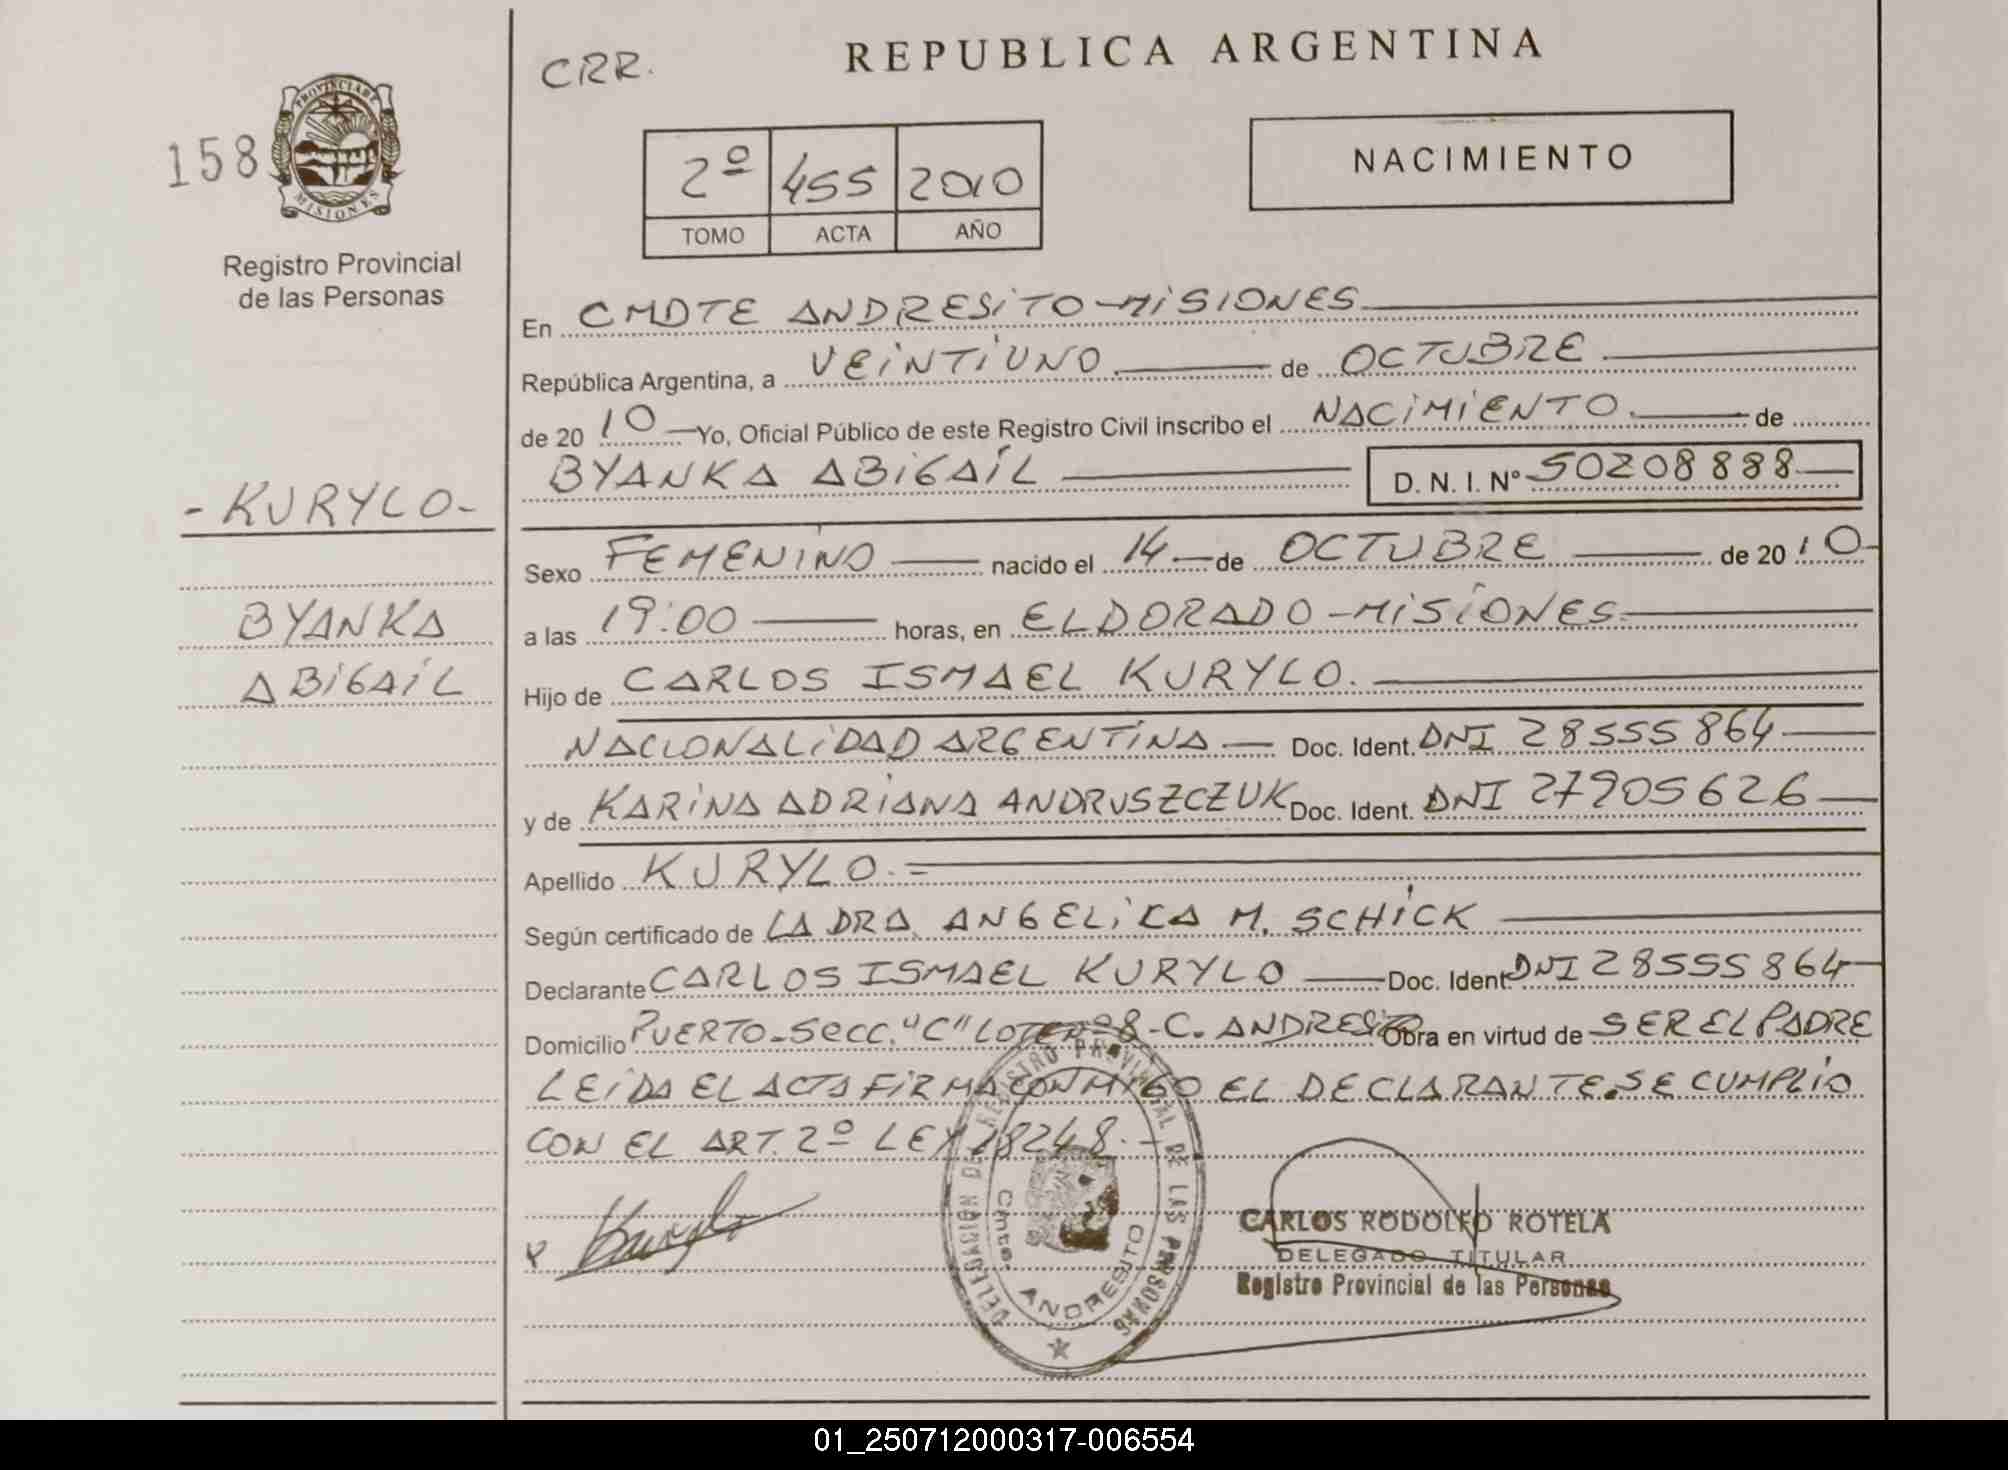 CRR.
REPUBLICA ARGENTINA
158
PROVINCIA DE
MISIONES
Registro Provincial
de las Personas
2º 455 2010
TOMO ACTA AÑO
NACIMIENTO
En CMDTE ANDRESITO-MISIONES
República Argentina, a VEINTIUNO de OCTUBRE
de 2010 Yo, Oficial Público de este Registro Civil inscribo el NACIMIENTO. de
BYANKA ABIGAÍL D. N. I. Nº 50208888
- KURYLO -
BYANKA
ABIGAÍL
Sexo FEMENINO nacido el 14 de OCTUBRE de 2010
a las 19:00 horas, en ELDORADO-MISIONES
Hijo de CARLOS ISMAEL KURYLO.
NACIONALIDAD ARGENTINA Doc. Ident. DNI 28555864
y de KARINA ADRIANA ANDRUSZCZUK Doc. Ident. DNI 27905626
Apellido KURYLO.=
Según certificado de LA DRA. ANGELICA M. SCHICK
Declarante CARLOS ISMAEL KURYLO Doc. Ident DNI 28555864
Domicilio PUERTO-SECC. "C" LOTE Nº 8-C. ANDRESITO Obra en virtud de SER EL PADRE
LEIDA EL ACTA FIRMA CONMIGO EL DECLARANTE. SE CUMPLIO
CON EL ART. 2º LEY 18248.-
Kurylo
DELEGACION DEL REGISTRO PROVINCIAL DE LAS PERSONAS
Cmte. ANDRESITO
CARLOS RODOLFO ROTELA
DELEGADO TITULAR
Registro Provincial de las Personas
01_250712000317-006554